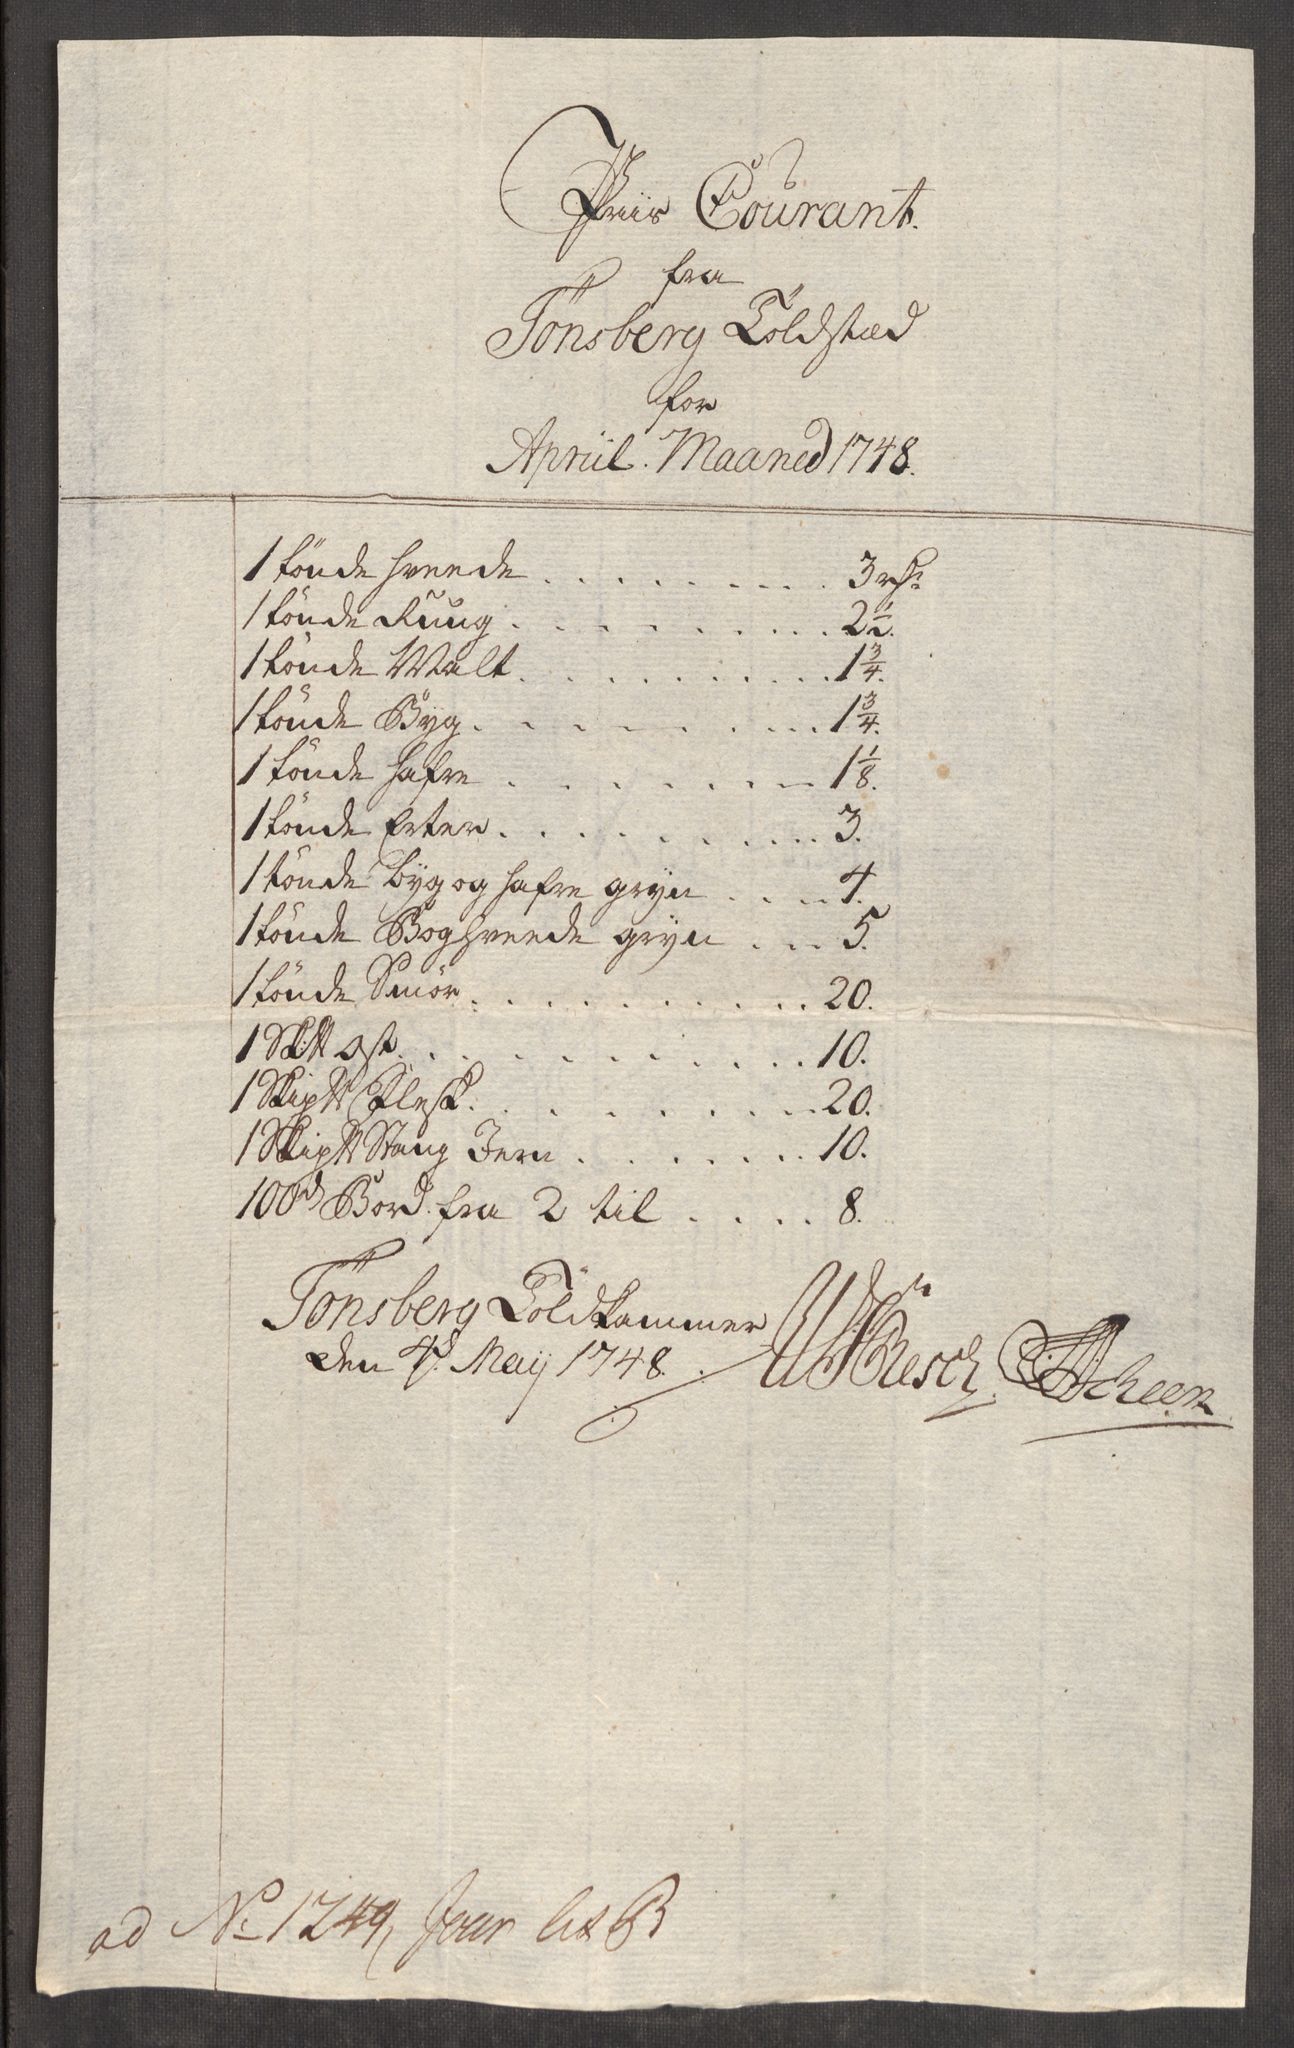 Priis Courant.
fra
Tönsberg Toldstæd
for
Apriil. Maaned 1748.
1 tönde hveede . . . . . . . . 3 rdr
1 tönde Ruug . . . . . . . . . 2 1/2.
1 tönde Malt . . . . . . . . . . 1 3/4.
1 tönde Byg . . . . . . . . . 1 3/4.
1 tönde hafre . . . . . . . 1 1/8.
1 tönde Erter . . . . . . . . . 3.
1 tönde byg og hafre gryn . . . . 4.
1 tönde Boghveede gryn . . . 5.
1 tönde Smör . . . . . . . . . . 20.
1 Sk℔ ost . . . . . . . . . . 10.
1 Skip℔ Flesk . . . . . . . . 20.
1 Skip℔ Stang Jern . . . . . . . 10.
100d Bord fra 2 til . . . . 8.
Tönsberg Toldkammer
den 4d. Maij 1748. Rœsch. Scheen
ad No 1249, Jour lit B